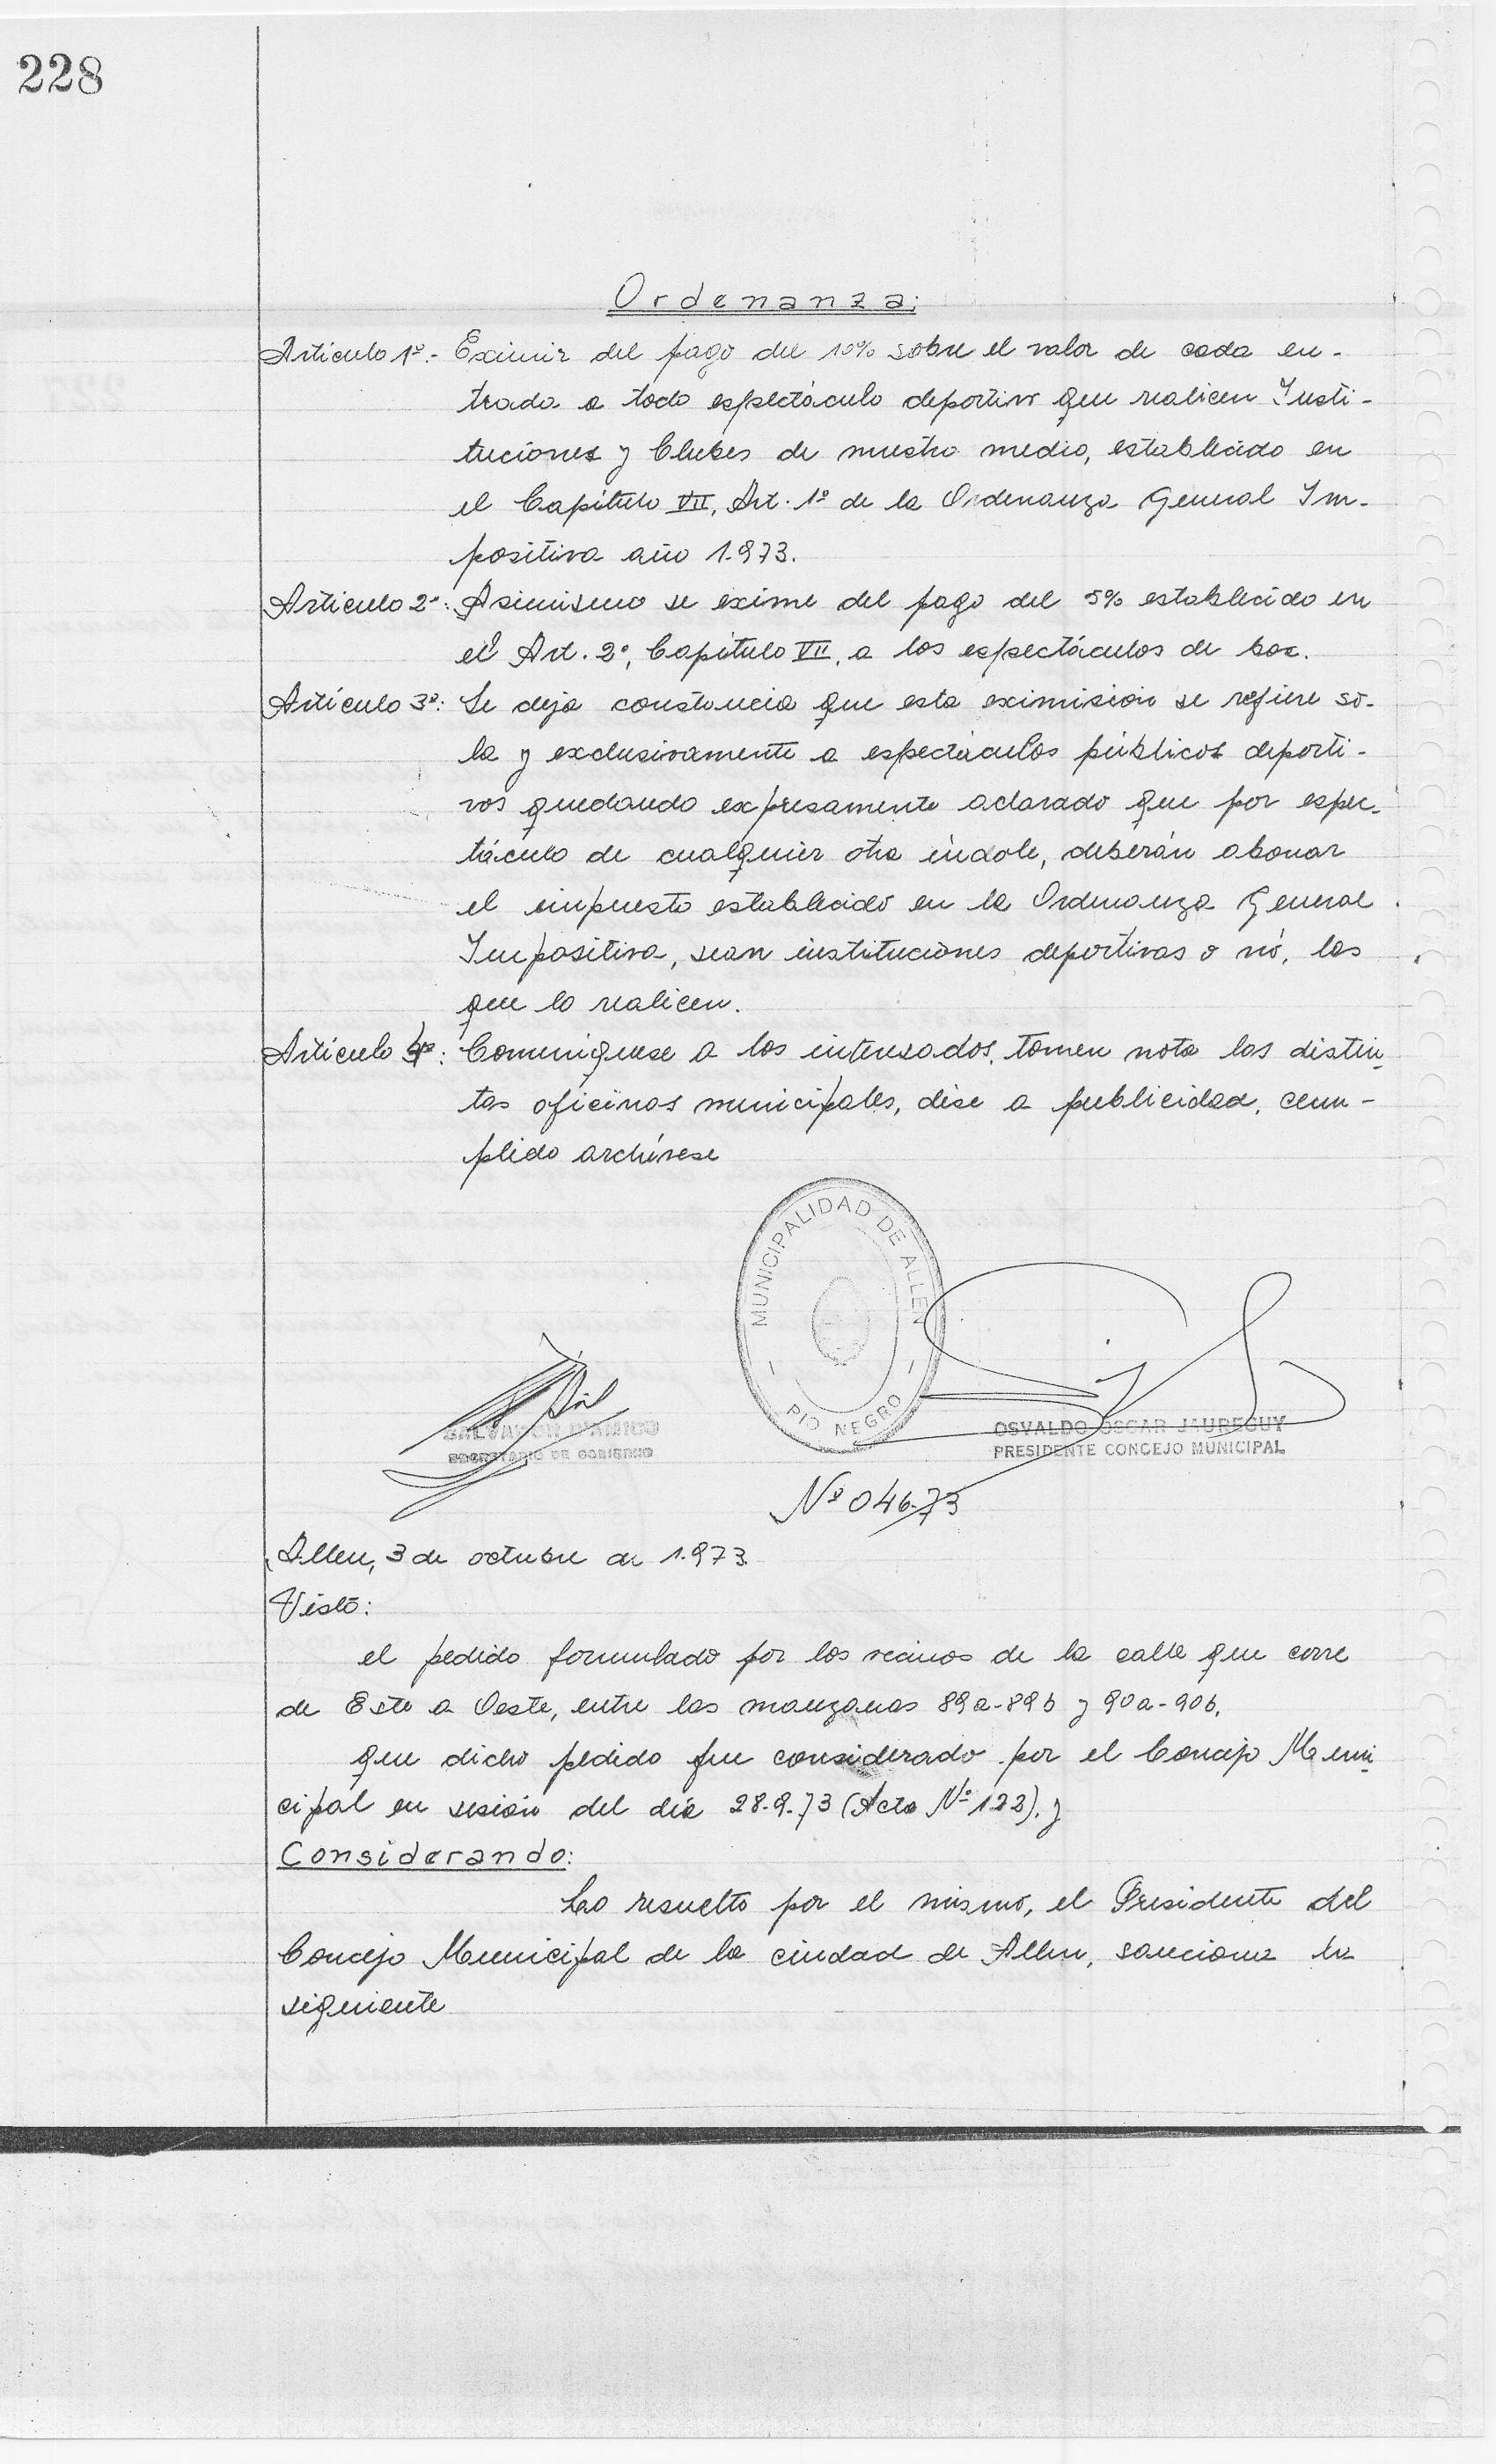 228
Ordenanza:
Artículo 1º.- Eximir del pago del 10% sobre el valor de cada en-
trada a todo espectáculo deportivo que realicen Insti-
tuciones y Clubes de nuestro medio, establecido en
el Capítulo VII, Art. 1º de la Ordenanza General Im-
positiva año 1.973.
Artículo 2º: Asimismo se exime del pago del 5% establecido en
el Art. 2º, Capítulo VII, a los espectáculos de box.
Artículo 3º: Se deja constancia que esta eximision se refiere so-
la y exclusivamente a espectáculos públicos deporti-
vos quedando expresamente aclarado que por espec-
táculo de cualquier otra índole, deberán abonar
el impuesto establecido en la Ordenanza General
Impositiva, sean instituciones deportivas o nó, las
que lo realicen.
Artículo 4º: Comuníquese a los interesados, tomen nota las distin-
tas oficinas municipales, dése a publicidad, cum-
plido archívese
MUNICIPALIDAD DE ALLEN
RIO NEGRO
SALVADOR D'AMICO
SECRETARIO DE GOBIERNO
OSVALDO OSCAR JAUREGUY
PRESIDENTE CONCEJO MUNICIPAL
Nº 046-73
Allen, 3 de octubre de 1.973.
Visto:
el pedido formulado por los vecinos de la calle que corre
de Este a Oeste, entre las manzanas 89a-89b y 90a-90b,
que dicho pedido fue considerado por el Concejo Muni-
cipal en sesión del día 28.9.73 (Acta Nº 122), y
Considerando:
Lo resuelto por el mismo, el Presidente del
Concejo Municipal de la ciudad de Allen, sanciona la
siguiente